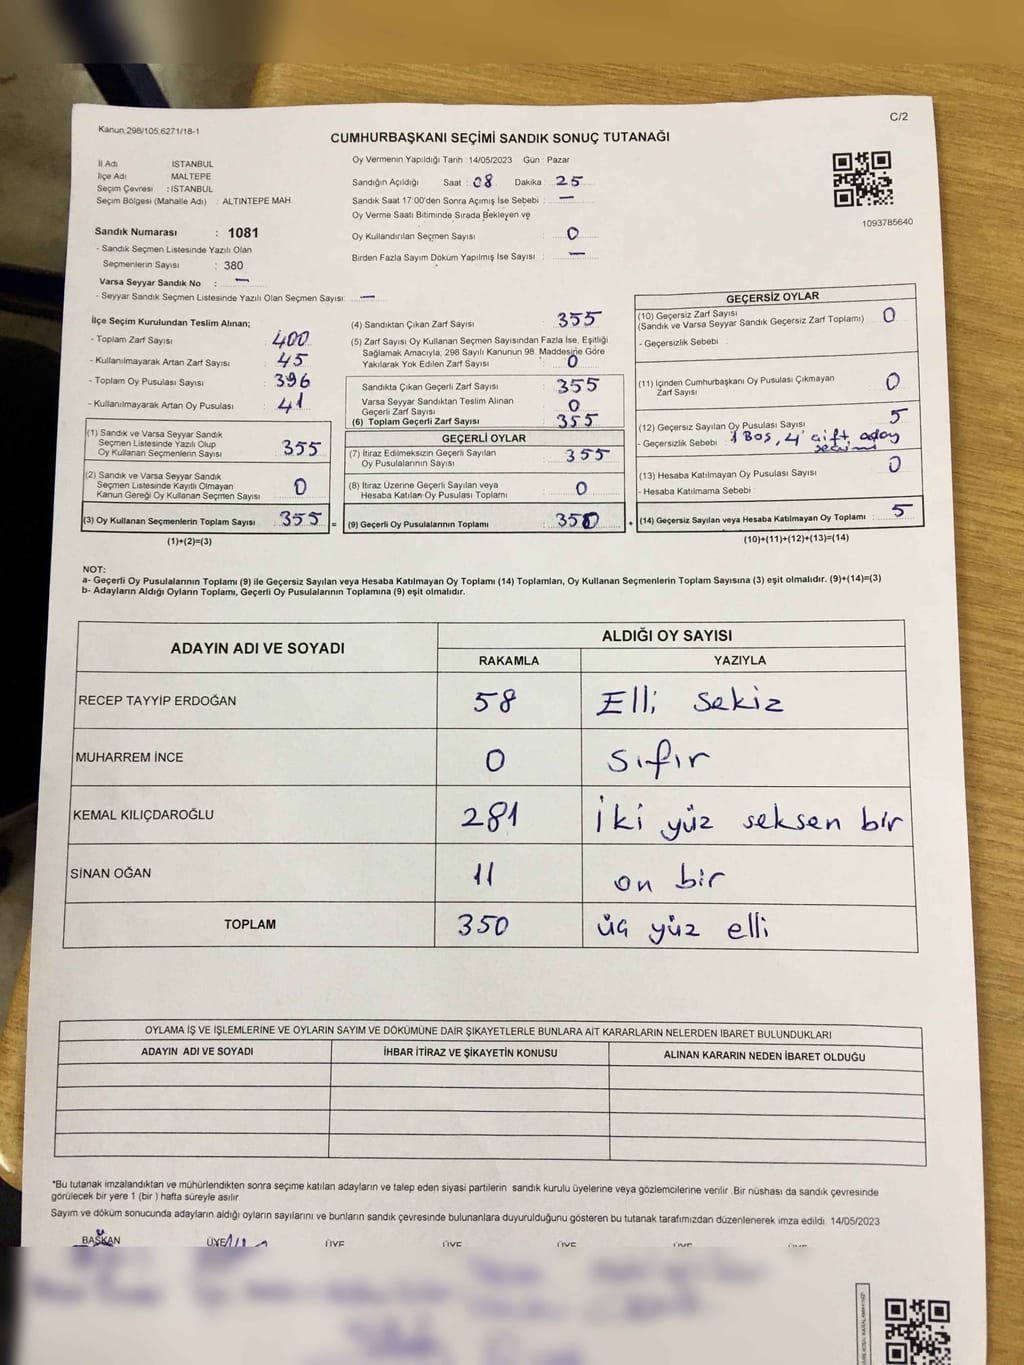 Kanun:298/105,6271/18-1
C/2
CUMHURBAŞKANI SEÇİMİ SANDIK SONUÇ TUTANAĞI
İl Adı İSTANBUL
İlçe Adı MALTEPE
Seçim Çevresi : İSTANBUL
Seçim Bölgesi (Mahalle Adı) : ALTINTEPE MAH.
Sandık Numarası : 1081
- Sandık Seçmen Listesinde Yazılı Olan
Seçmenlerin Sayısı : 380
Varsa Seyyar Sandık No : —
- Seyyar Sandık Seçmen Listesinde Yazılı Olan Seçmen Sayısı: —
Oy Vermenin Yapıldığı Tarih : 14/05/2023 Gün : Pazar
Sandığın Açıldığı Saat : 08 Dakika : 25
Sandık Saat 17:00'den Sonra Açımış İse Sebebi : —
Oy Verme Saati Bitiminde Sırada Bekleyen ve
Oy Kullandırılan Seçmen Sayısı : 0
Birden Fazla Sayım Döküm Yapılmış İse Sayısı : —
1093785640
İlçe Seçim Kurulundan Teslim Alınan;
- Toplam Zarf Sayısı : 400
- Kullanılmayarak Artan Zarf Sayısı : 45
- Toplam Oy Pusulası Sayısı : 396
- Kullanılmayarak Artan Oy Pusulası : 41
(1) Sandık ve Varsa Seyyar Sandık
Seçmen Listesinde Yazılı Olup
Oy Kullanan Seçmenlerin Sayısı : 355
(2) Sandık ve Varsa Seyyar Sandık
Seçmen Listesinde Kayıtlı Olmayan
Kanun Gereği Oy Kullanan Seçmen Sayısı : 0
(3) Oy Kullanan Seçmenlerin Toplam Sayısı : 355 =
(1)+(2)=(3)
(4) Sandıktan Çıkan Zarf Sayısı : 355
(5) Zarf Sayısı Oy Kullanan Seçmen Sayısından Fazla İse, Eşitliği
Sağlamak Amacıyla; 298 Sayılı Kanunun 98. Maddesine Göre
Yakılarak Yok Edilen Zarf Sayısı : 0
Sandıkta Çıkan Geçerli Zarf Sayısı : 355
Varsa Seyyar Sandıktan Teslim Alınan
Geçerli Zarf Sayısı : 0
(6) Toplam Geçerli Zarf Sayısı : 355
GEÇERLİ OYLAR
(7) İtiraz Edilmeksizin Geçerli Sayılan
Oy Pusulalarının Sayısı : 355
(8) İtiraz Üzerine Geçerli Sayılan veya
Hesaba Katılan Oy Pusulası Toplamı : 0
(9) Geçerli Oy Pusulalarının Toplamı : 350 +
GEÇERSİZ OYLAR
(10) Geçersiz Zarf Sayısı
(Sandık ve Varsa Seyyar Sandık Geçersiz Zarf Toplamı) : 0
- Geçersizlik Sebebi :
(11) İçinden Cumhurbaşkanı Oy Pusulası Çıkmayan
Zarf Sayısı : 0
(12) Geçersiz Sayılan Oy Pusulası Sayısı : 5
- Geçersizlik Sebebi : 1 Boş, 4 çift aday
seçimi
(13) Hesaba Katılmayan Oy Pusulası Sayısı : 0
- Hesaba Katılmama Sebebi :
(14) Geçersiz Sayılan veya Hesaba Katılmayan Oy Toplamı : 5
(10)+(11)+(12)+(13)=(14)
NOT:
a- Geçerli Oy Pusulalarının Toplamı (9) ile Geçersiz Sayılan veya Hesaba Katılmayan Oy Toplamı (14) Toplamları, Oy Kullanan Seçmenlerin Toplam Sayısına (3) eşit olmalıdır. (9)+(14)=(3)
b- Adayların Aldığı Oyların Toplamı, Geçerli Oy Pusulalarının Toplamına (9) eşit olmalıdır.
ADAYIN ADI VE SOYADI ALDIĞI OY SAYISI
RAKAMLA YAZIYLA
RECEP TAYYİP ERDOĞAN 58 Elli sekiz
MUHARREM İNCE 0 sıfır
KEMAL KILIÇDAROĞLU 281 iki yüz seksen bir
SİNAN OĞAN 11 on bir
TOPLAM 350 üç yüz elli
OYLAMA İŞ VE İŞLEMLERİNE VE OYLARIN SAYIM VE DÖKÜMÜNE DAİR ŞİKAYETLERLE BUNLARA AİT KARARLARIN NELERDEN İBARET BULUNDUKLARI
ADAYIN ADI VE SOYADI İHBAR İTİRAZ VE ŞİKAYETİN KONUSU ALINAN KARARIN NEDEN İBARET OLDUĞU
*Bu tutanak imzalandıktan ve mühürlendikten sonra seçime katılan adayların ve talep eden siyasi partilerin sandık kurulu üyelerine veya gözlemcilerine verilir. Bir nüshası da sandık çevresinde
görülecek bir yere 1 (bir ) hafta süreyle asılır.
Sayım ve döküm sonucunda adayların aldığı oyların sayılarını ve bunların sandık çevresinde bulunanlara duyurulduğunu gösteren bu tutanak tarafımızdan düzenlenerek imza edildi. 14/05/2023
BAŞKAN ÜYE ÜYE ÜYE ÜYE ÜYE ÜYE